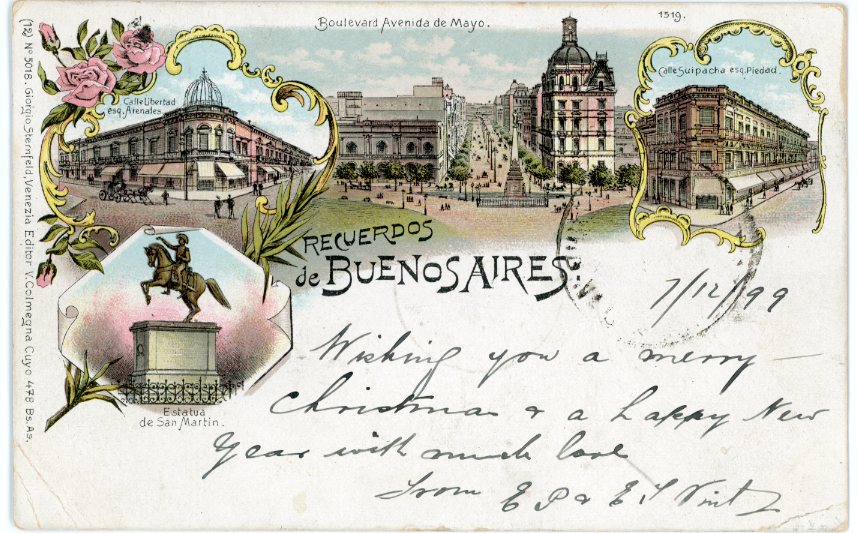 Boulevard Avenida de Mayo.
1519.
Calle Libertad
esq. Arenales
Calle Suipacha esq. Piedad.
RECUERDOS
de BUENOS AIRES.
Estatua
de San Martin.
(12) Nº 5018. Giorgio Sternfeld, Venezia Editor V. Colmegna Cuyo 478 Bs. As.
7/12/99
Wishing you a merry
Christmas & a happy New
Year with much love
from E P & E